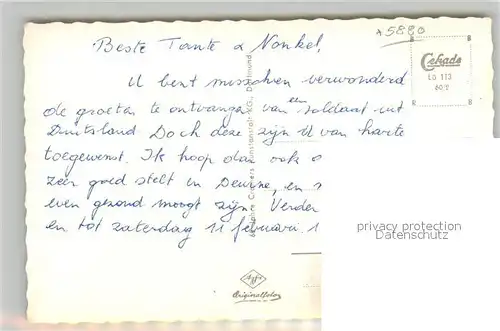 5880
Beste Tante & Nonkel,
U bent misschien verwonderd
de groeten te ontvangen van een soldaat uit
Duitsland Doch deze zijn U van harte
toegewenst. Ik hoop dan ook
zeer goed stelt in Deurne, en
even gezond moogt zijn. Verder
en tot zaterdag 11 februari.
Cekade
LÖ 113
60/9
Cramers Kunstanstalt KG, Dortmund
Agfa
Originalfoto
privacy protection
Datenschutz